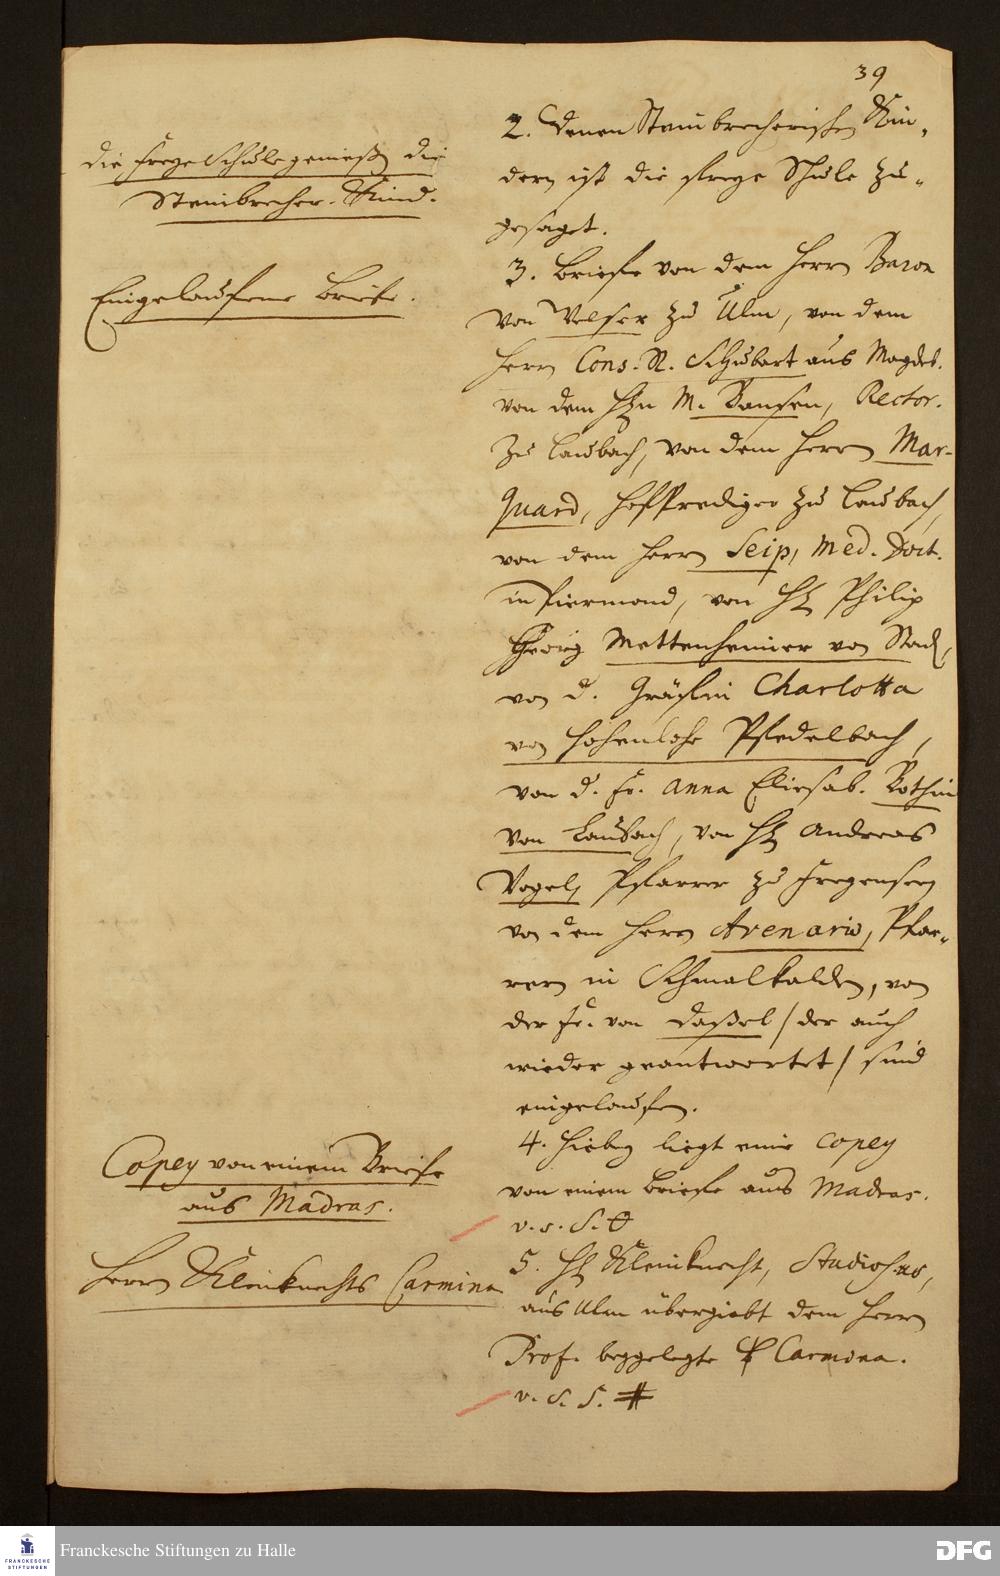 39
die freye Schule genießen die
Steinbrecher. Kind.
Eingelaufene Briefe.
Copey von einem Briefe
aus Madras.
Herrn Kleinknechts Carmina
2. Denen Steinbrecherischen Kin-
dern ist die freye Schule zu-
gesaget.
3. Briefe von dem Herrn Baron
von Welser zu Ulm, von dem
Herrn Cons. R. Schubart aus Magdeb.
von dem Hrn M. Bansen, Rector.
zu Laubach, von dem Herrn Mar-
quard, Hoffprediger zu Laubach,
von dem Herrn Seip, Med. Doct.
in Piermond, von H. Philip
Georg Mettenheimer von
von d. Gräfin Charlotta
von Hohenlohe Pfedelbach,
von d. Fr. Anna Eliesab. Rothin
von Laubach, von H. Andreas
Vogel, Pfarrer zu
von dem Herrn Avenario, Pfar-
rern in Schmalkalden, von
der Fr. von Daßel / der auch
wieder geantwortet / sind
eingelaufen.
4. Hiebey liegt eine Copey
von einem Briefe aus Madras.
v. s. S. O
5. H. Kleinknecht, Studiosus,
aus Ulm übergiebt dem Herrn
Prof. beygelegte Carmina.
v. S. S. #
Franckesche Stiftungen zu Halle
FRANCKESCHE
STIFTUNGEN
DFG